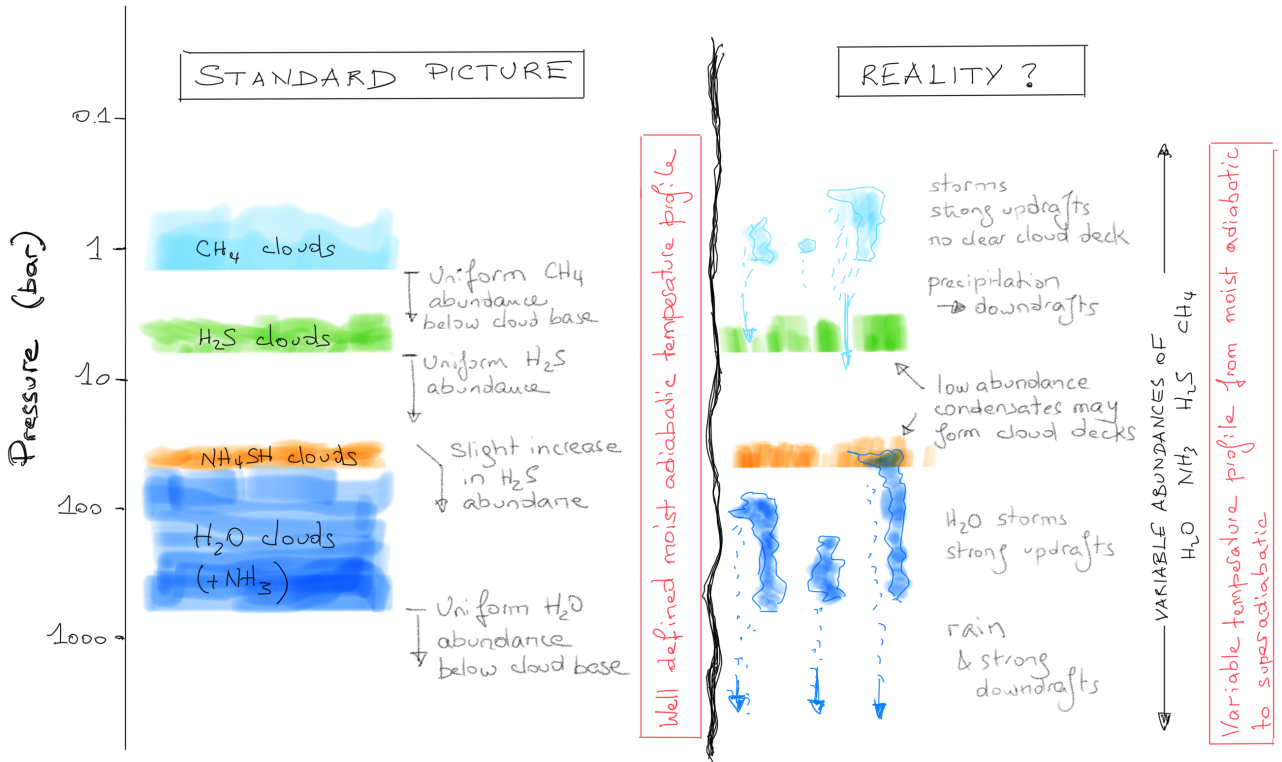 STANDARD PICTURE
REALITY ?
Pressure (bar)
0.1
1
10
100
1000
CH4 clouds
Uniform CH4
abundance
below cloud base
H2S clouds
Uniform H2S
abundance
NH4SH clouds
Slight increase
in H2S
abundance
H2O clouds
(+NH3)
Uniform H2O
abundance
below cloud base
Well defined moist adiabatic temperature profile
storms
strong updrafts
no clear cloud deck
precipitation
→ downdrafts
low abundance
condensates may
form cloud decks
H2O storms
strong updrafts
rain
& strong
downdrafts
VARIABLE ABUNDANCES OF
H2O NH3 H2S CH4
Variable temperature profile from moist adiabatic
to superadiabatic